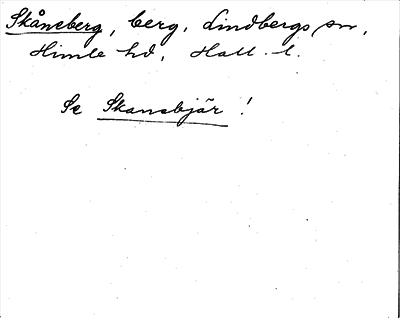 Skåneberg, berg, Lindbergs sn,
Himle hd, Hall. l.
Se Skansbjär!